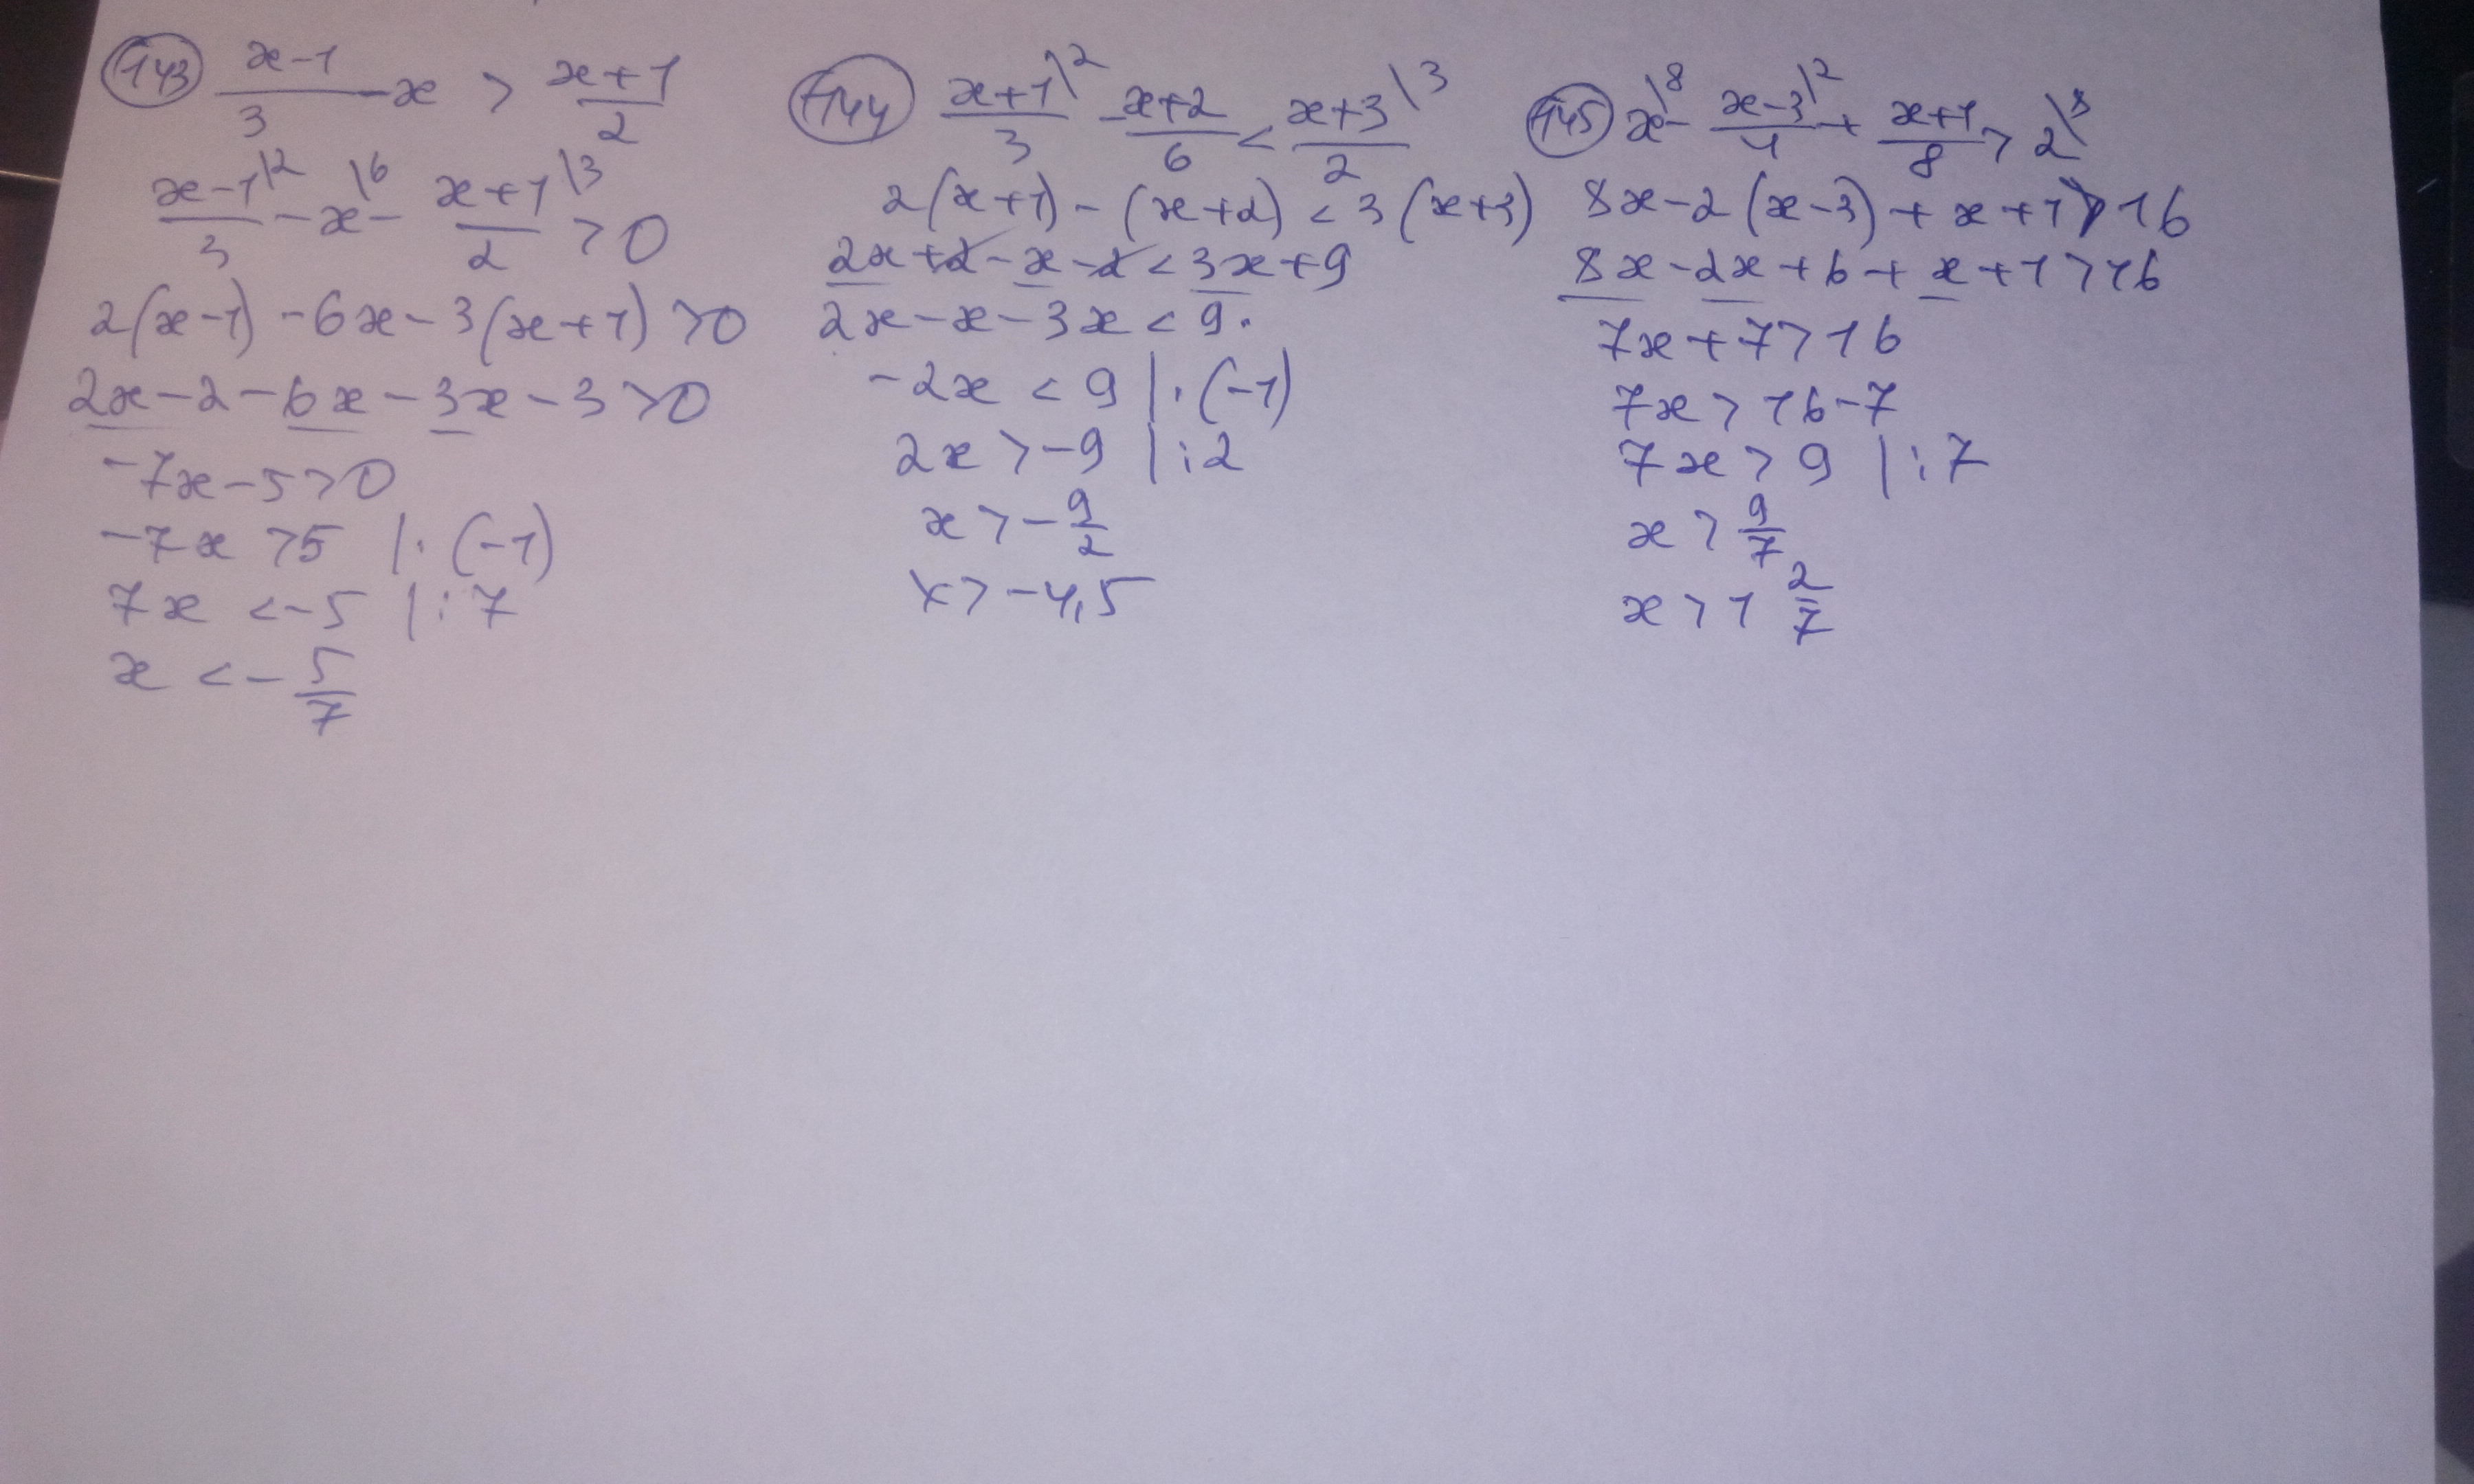 143 (x-1)/3 - x > (x+1)/2
(x-1)/3 \2 - x \6 - (x+1)/2 \3 > 0
2(x-1) - 6x - 3(x+1) > 0
2x - 2 - 6x - 3x - 3 > 0
-7x - 5 > 0
-7x > 5 | · (-1)
7x < -5 | : 7
x < - 5/7
144 (x+1)/3 \2 - (x+2)/6 < (x+3)/2 \3
2(x+1) - (x+2) < 3(x+3)
2x + 2 - x - 2 < 3x + 9
2x - x - 3x < 9.
-2x < 9 | · (-1)
2x > -9 | : 2
x > - 9/2
x > -4,5
145 x \8 - (x-3)/4 \2 + (x+1)/8 > 2 \8
8x - 2(x-3) + x + 1 > 16
8x - 2x + 6 + x + 1 > 16
7x + 7 > 16
7x > 16 - 7
7x > 9 | : 7
x > 9/7
x > 1 2/7